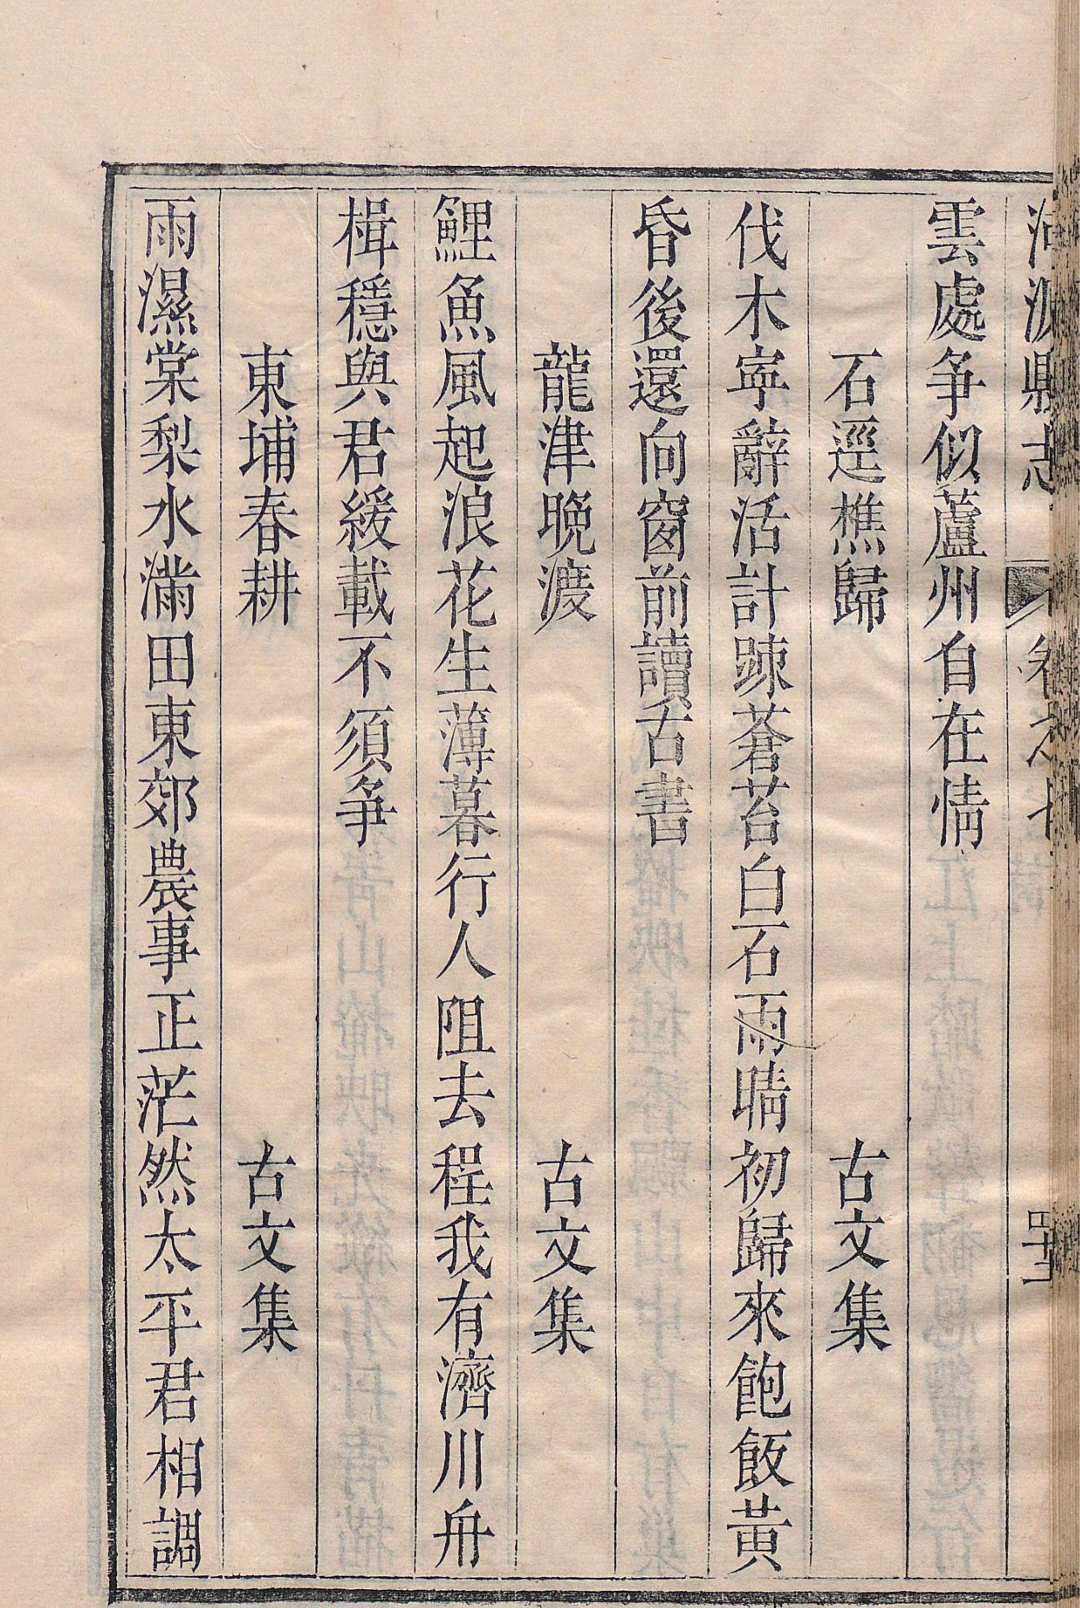 河源縣志 卷之十 四十一
雲處争似蘆州自在情
石逕樵歸 古文集
伐木寧辭活計踈蒼苔白石雨晴初歸來飽飯黃
昏後還向窗前讀古書
龍津晩渡 古文集
鯉魚風起浪花生薄暮行人阻去程我有濟川舟
楫穩與君緩載不須争
東埔春耕 古文集
雨濕棠梨水滿田東郊農事正茫然太平君相調